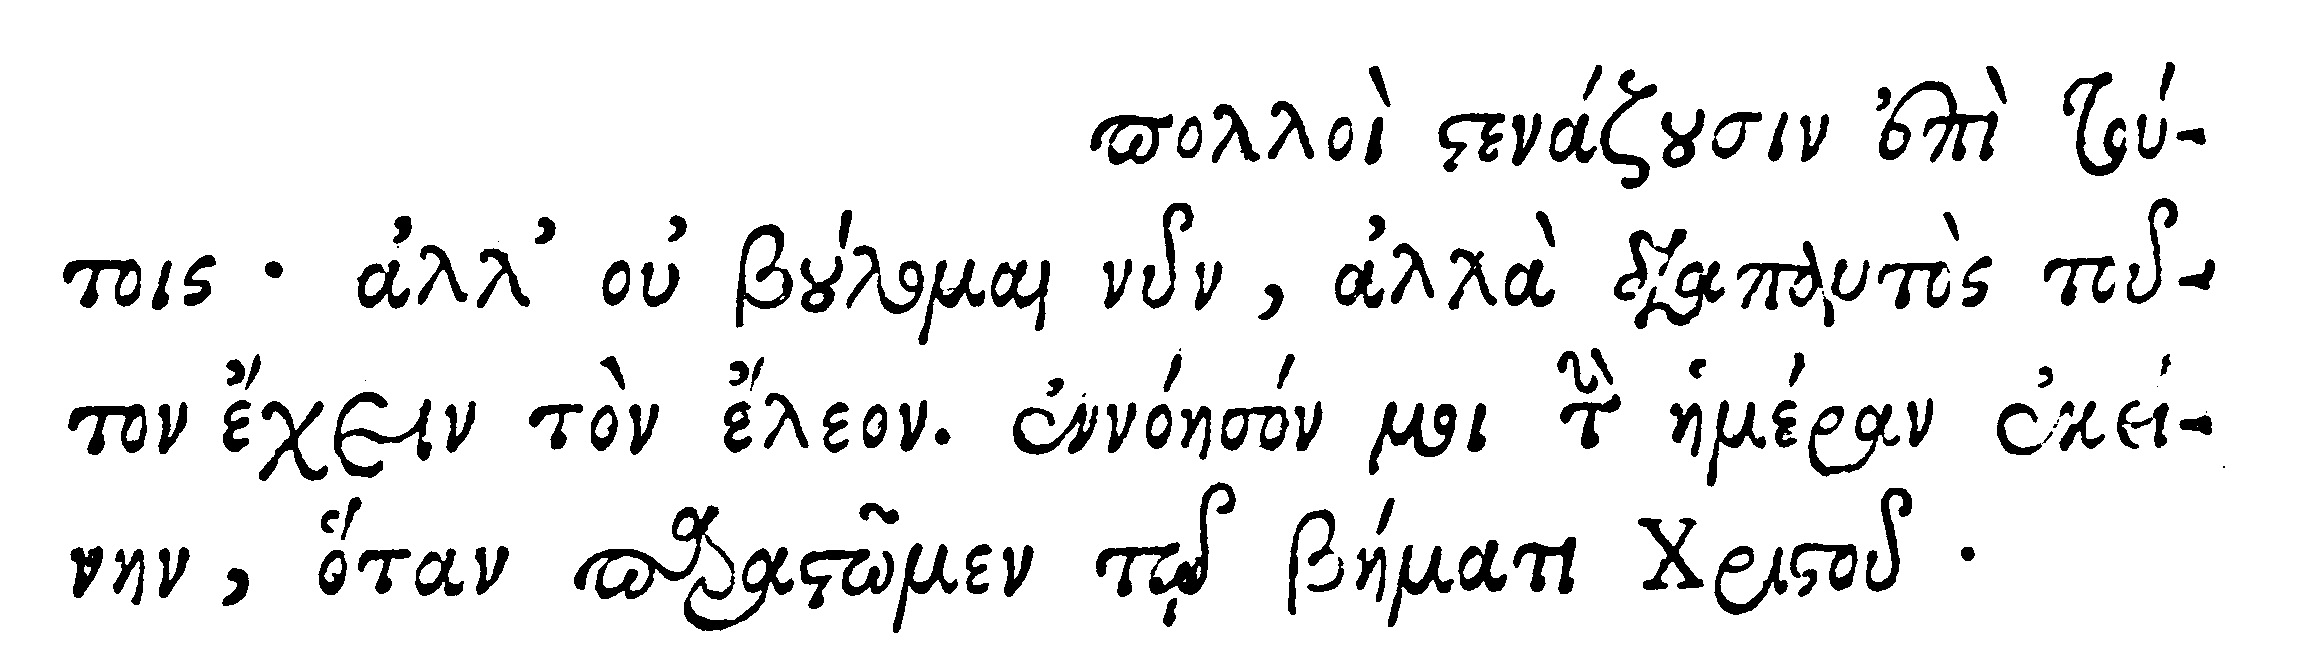 πολλοὶ στενάζουσιν ἐπὶ τού-
τοις · ἀλλ’ οὐ βούλομαι νῦν, ἀλλὰ διαπαντὸς τοῦ-
τον ἔχειν τὸν ἔλεον. ἐννόησόν μοι τὴν ἡμέραν ἐκεί-
νην, ὅταν παραστῶμεν τῷ βήματι Χριστοῦ ·